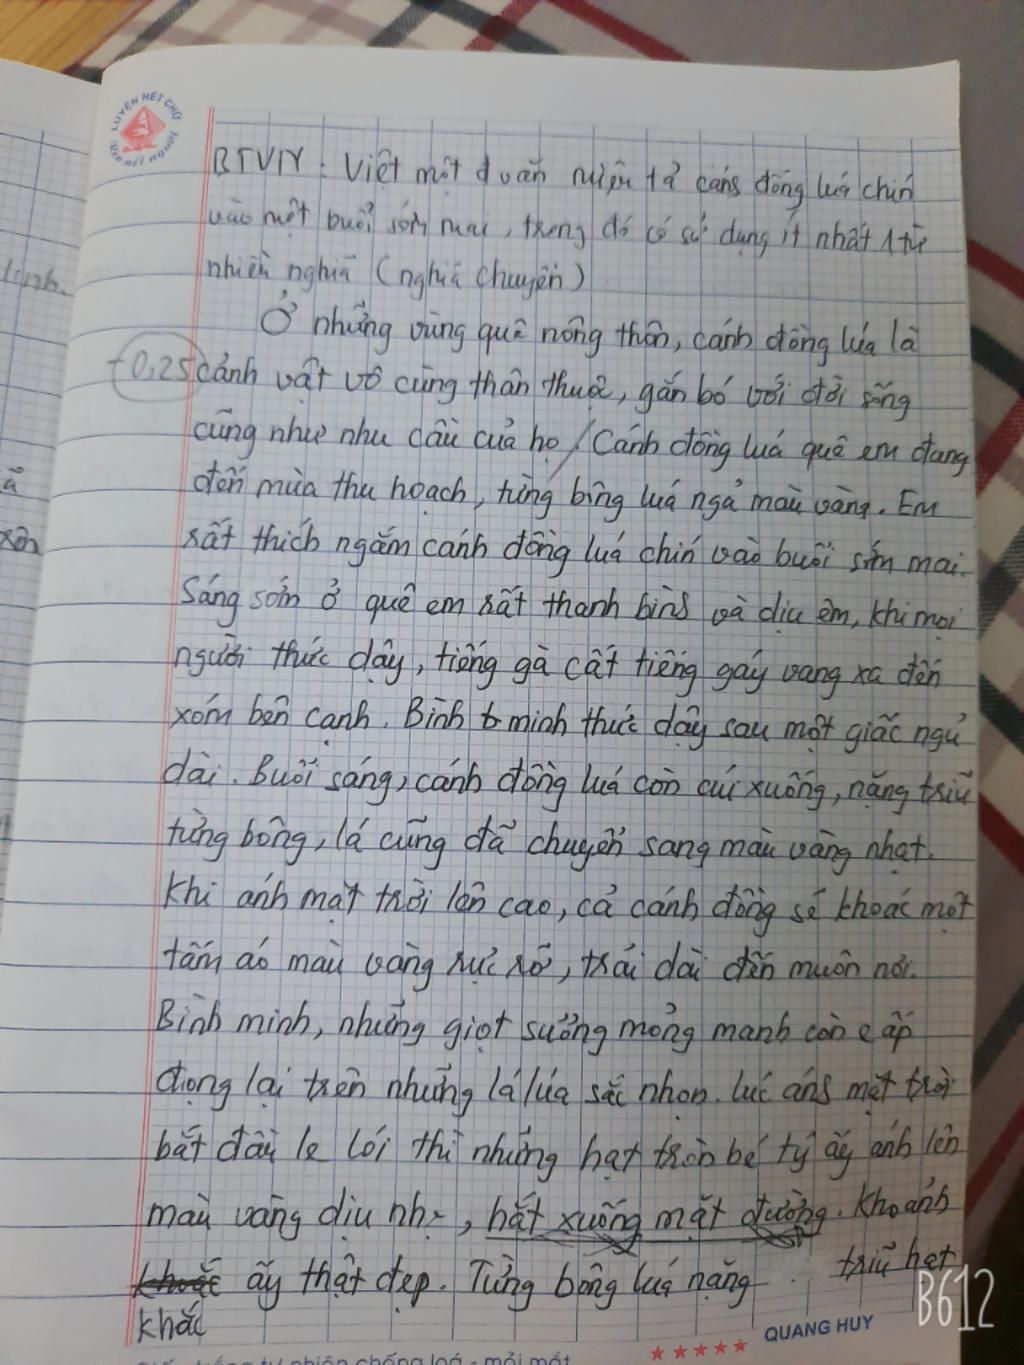 LUYỆN NÉT CHỮ
Rèn nết người
BTVN: Viết một đoạn miêu tả cánh đồng lúa chín
vào một buổi sớm mai, trong đó có sử dụng ít nhất 1 từ
nhiều nghĩa (nghĩa chuyển)
Ở những vùng quê nông thôn, cánh đồng lúa là
-0,25 cảnh vật vô cùng thân thuộc, gắn bó với đời sống
cũng như nhu cầu của họ / Cánh đồng luá quê em đang
đến mùa thu hoạch, từng bông luá ngả màu vàng. Em
rất thích ngắm cánh đồng luá chín vào buổi sớm mai.
Sáng sớm ở quê em rất thanh bình và dịu êm, khi mọi
người thức dậy, tiếng gà cất tiếng gáy vang xa đến
xóm bên cạnh. Bình minh thức dậy sau một giấc ngủ
dài. Buổi sáng, cánh đồng luá còn cúi xuống, nặng trĩu
từng bông, lá cũng đã chuyển sang màu vàng nhạt.
Khi ánh mặt trời lên cao, cả cánh đồng sẽ khoác một
tấm áo màu vàng rực rỡ, trải dài đến muôn nơi.
Bình minh, những giọt sương mỏng manh còn ấp
đọng lại trên những lá lúa sắc nhọn. lúc ánh mặt trời
bắt đầu le lói thì những hạt tròn bé tý ấy ánh lên
màu vàng dịu nhẹ, hắt xuống mặt đường. Khoảnh
khoắc ấy thật đẹp. Từng bông luá nặng trĩu hạt
khắc
QUANG HUY
B612